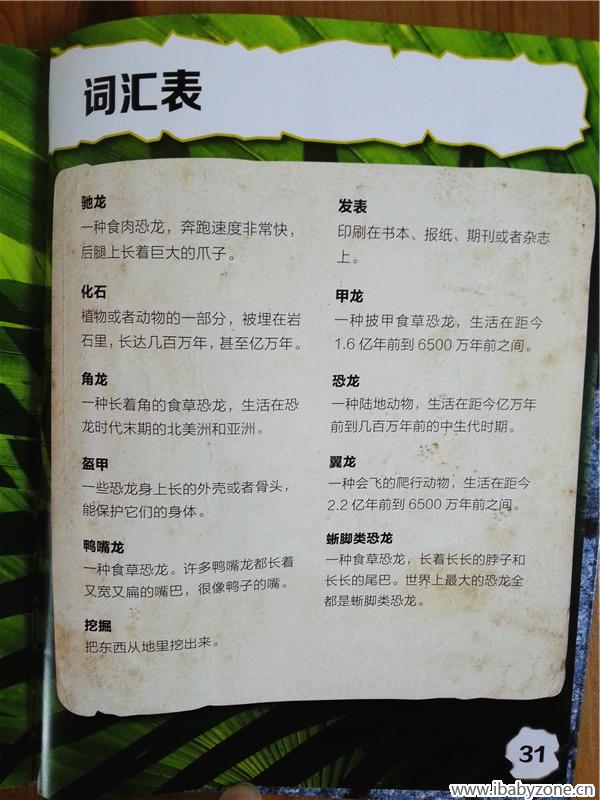 词汇表
驰龙
一种食肉恐龙，奔跑速度非常快，
后腿上长着巨大的爪子。
化石
植物或者动物的一部分，被埋在岩
石里，长达几百万年，甚至亿万年。
角龙
一种长着角的食草恐龙，生活在恐
龙时代末期的北美洲和亚洲。
盔甲
一些恐龙身上长的外壳或者骨头，
能保护它们的身体。
鸭嘴龙
一种食草恐龙。许多鸭嘴龙都长着
又宽又扁的嘴巴，很像鸭子的嘴。
挖掘
把东西从地里挖出来。
发表
印刷在书本、报纸、期刊或者杂志
上。
甲龙
一种披甲食草恐龙，生活在距今
1.6 亿年前到 6500 万年前之间。
恐龙
一种陆地动物，生活在距今亿万年
前到几百万年前的中生代时期。
翼龙
一种会飞的爬行动物，生活在距今
2.2 亿年前到 6500 万年前之间。
蜥脚类恐龙
一种食草恐龙，长着长长的脖子和
长长的尾巴。世界上最大的恐龙全
都是蜥脚类恐龙。
31
www.ibabyzone.cn